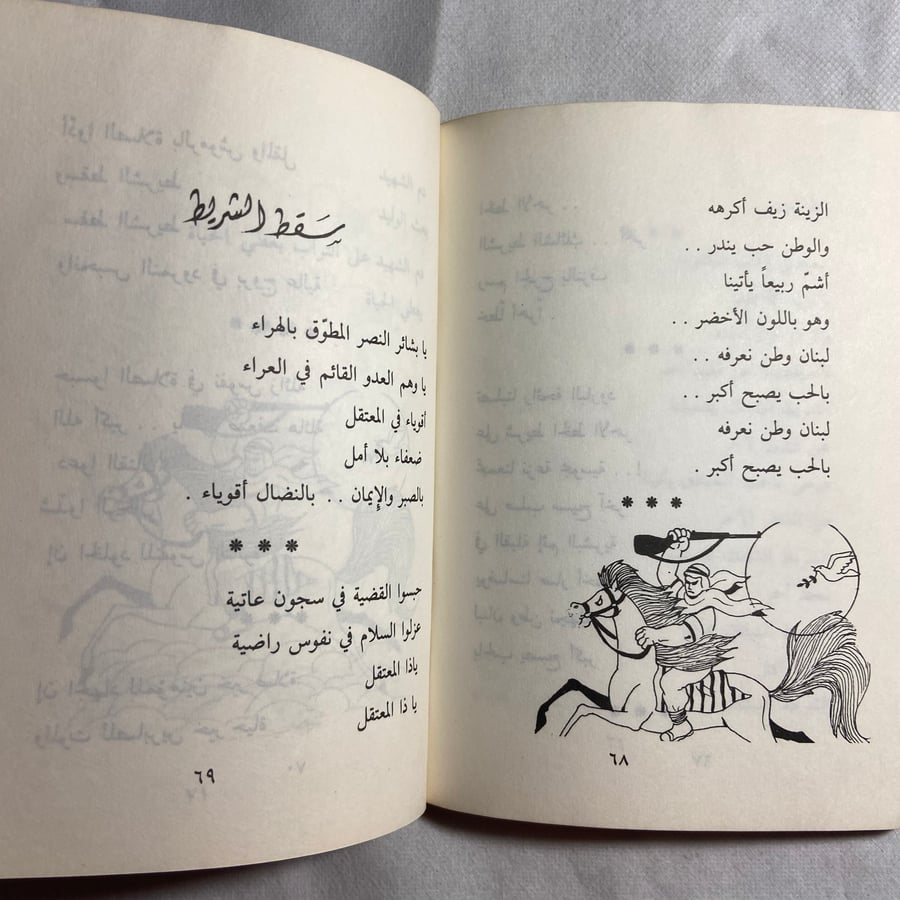 الزينة زيف أكرهه
والوطن حب يندر . .
أشمّ ربيعاً يأتينا
وهو باللون الأخضر . .
لبنان وطن نعرفه . .
بالحب يصبح أكبر . .
لبنان وطن نعرفه
بالحب يصبح أكبر .
* * *
٦٨
سقط الشريط
يا بشائر النصر المطوّق بالهراء
يا وهم العدو القائم في العراء
أقوياء في المعتقل
ضعفاء بلا أمل
بالصبر والإيمان . . بالنضال أقوياء .
* * *
حبسوا القضية في سجون عاتية
عزلوا السلام في نفوس راضية
ياذا المعتقل
يا ذا المعتقل
٦٩